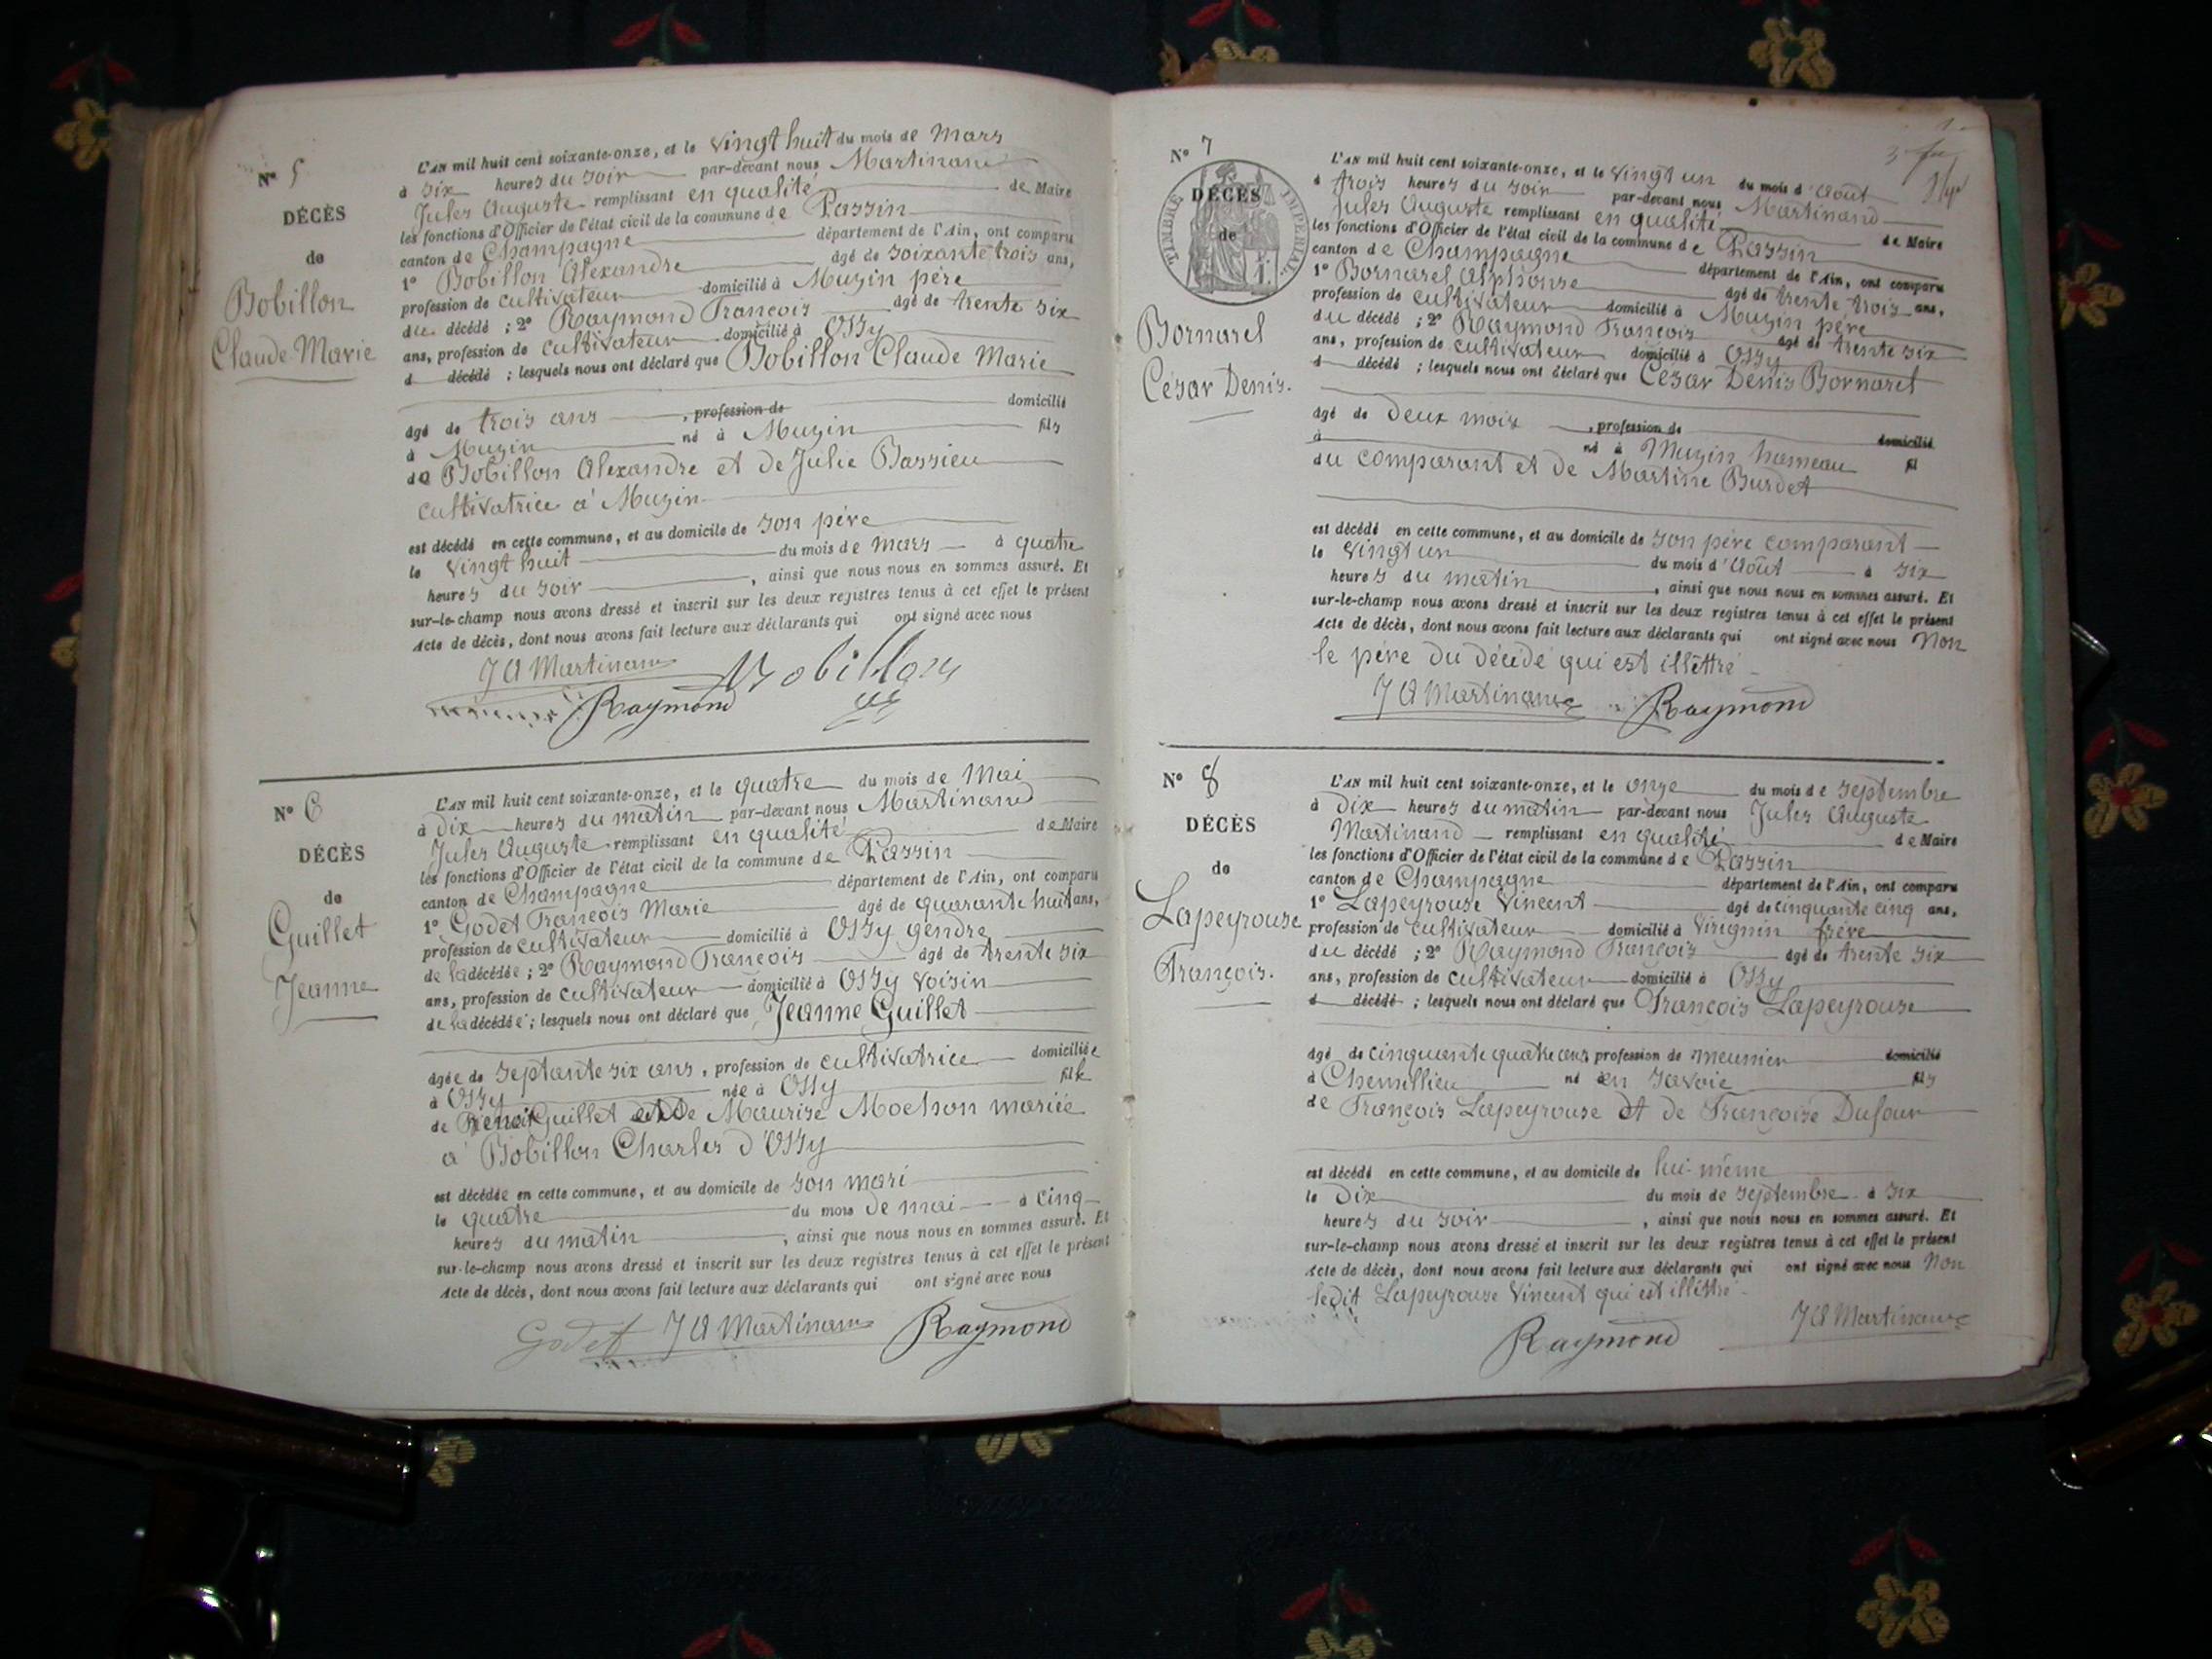 N° 5
DÉCÈS
de
Bobillon
Claude Marie
L'AN mil huit cent soixante-onze, et le vingt huit du mois de Mars
à six heures du soir par-devant nous Martinand
Jules Auguste remplissant en qualité de Maire
les fonctions d'Officier de l'état civil de la commune de Passin
canton de Champagne département de l'Ain, ont comparu
1° Bobillon Alexandre âgé de soixante trois ans,
profession de cultivateur domicilié à Muzin père
du décédé ; 2° Raymond François âgé de trente six
ans, profession de cultivateur domicilié à Ossy
d décédé ; lesquels nous ont déclaré que Bobillon Claude Marie
âgé de trois ans , profession de domicilié
à Muzin né à Muzin fils
de Bobillon Alexandre et de Julie Bassieu
cultivatrice à Muzin
est décédé en cette commune, et au domicile de son père
le vingt huit du mois de mars à quatre
heures du soir , ainsi que nous nous en sommes assuré. Et
sur-le-champ nous avons dressé et inscrit sur les deux registres tenus à cet effet le présent
Acte de décès, dont nous avons fait lecture aux déclarants qui ont signé avec nous
J A Martinand Bobillon
Raymond
N° 6
DÉCÈS
de
Guillet
Jeanne
L'AN mil huit cent soixante-onze, et le quatre du mois de Mai
à dix heures du matin par-devant nous Martinand
Jules Auguste remplissant en qualité de Maire
les fonctions d'Officier de l'état civil de la commune de Passin
canton de Champagne département de l'Ain, ont comparu
1° Godet François Marie âgé de quarante huit ans,
profession de cultivateur domicilié à Ossy gendre
de la décédée ; 2° Raymond François âgé de trente six
ans, profession de cultivateur domicilié à Ossy voisin
de la décédée ; lesquels nous ont déclaré que Jeanne Guillet
âgée de septante six ans , profession de cultivatrice domiciliée
à Ossy née à Ossy fille
de Benoit Guillet et de Maurise Mochon mariée
à Bobillon Charles d'Ossy
est décédée en cette commune, et au domicile de son mari
le quatre du mois de mai à cinq
heures du matin , ainsi que nous nous en sommes assuré. Et
sur-le-champ nous avons dressé et inscrit sur les deux registres tenus à cet effet le présent
Acte de décès, dont nous avons fait lecture aux déclarants qui ont signé avec nous
Godet J A Martinand Raymond
N° 7
TIMBRE IMPÉRIAL
DÉCÈS
de
Bornarel
César Denis.
L'AN mil huit cent soixante-onze, et le vingt un du mois d'août
à trois heures du soir par-devant nous Martinand
Jules Auguste remplissant en qualité de Maire
les fonctions d'Officier de l'état civil de la commune de Passin
canton de Champagne département de l'Ain, ont comparu
1° Bornarel Alphonse âgé de trente trois ans,
profession de cultivateur domicilié à Muzin père
du décédé ; 2° Raymond François âgé de trente six
ans, profession de cultivateur domicilié à Ossy
d décédé ; lesquels nous ont déclaré que César Denis Bornarel
âgé de deux mois , profession de domicilié
à né à Muzin hameau fil
du comparant et de Martine Burdet
est décédé en cette commune, et au domicile de son père comparant
le vingt un du mois d'Août à six
heures du matin , ainsi que nous nous en sommes assuré. Et
sur-le-champ nous avons dressé et inscrit sur les deux registres tenus à cet effet le présent
Acte de décès, dont nous avons fait lecture aux déclarants qui ont signé avec nous Non
le père du décédé qui est illêttré
J A Martinand Raymond
N° 8
DÉCÈS
de
Lapeyrouse
François.
L'AN mil huit cent soixante-onze, et le onze du mois de septembre
à dix heures du matin par-devant nous Jules Auguste
Martinand remplissant en qualité de Maire
les fonctions d'Officier de l'état civil de la commune de Passin
canton de Champagne département de l'Ain, ont comparu
1° Lapeyrouse Vincent âgé de cinquante cinq ans,
profession de cultivateur domicilié à Virignin frère
du décédé ; 2° Raymond François âgé de trente six
ans, profession de cultivateur domicilié à Ossy
d décédé ; lesquels nous ont déclaré que François Lapeyrouse
âgé de cinquante quatre ans profession de meunier domicilié
à Chemillieu né en Savoie fils
de François Lapeyrouse et de Françoise Dufour
est décédé en cette commune, et au domicile de lui-même
le dix du mois de septembre à six
heures du soir , ainsi que nous nous en sommes assuré. Et
sur-le-champ nous avons dressé et inscrit sur les deux registres tenus à cet effet le présent
Acte de décès, dont nous avons fait lecture aux déclarants qui ont signé avec nous Non
ledit Lapeyrouse Vincent qui est illêttré
Raymond J A Martinand